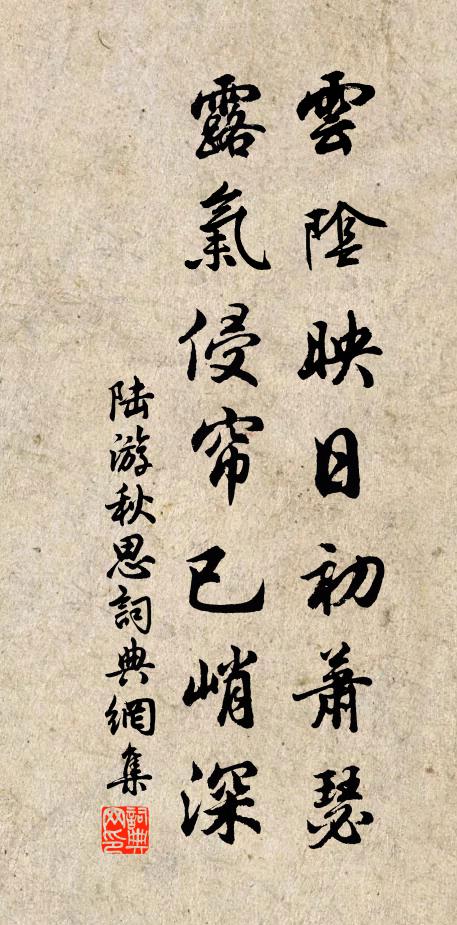 雲陰映日初蕭瑟
露氣侵帘已峭深
陆游秋思詞典網集
詞典網印